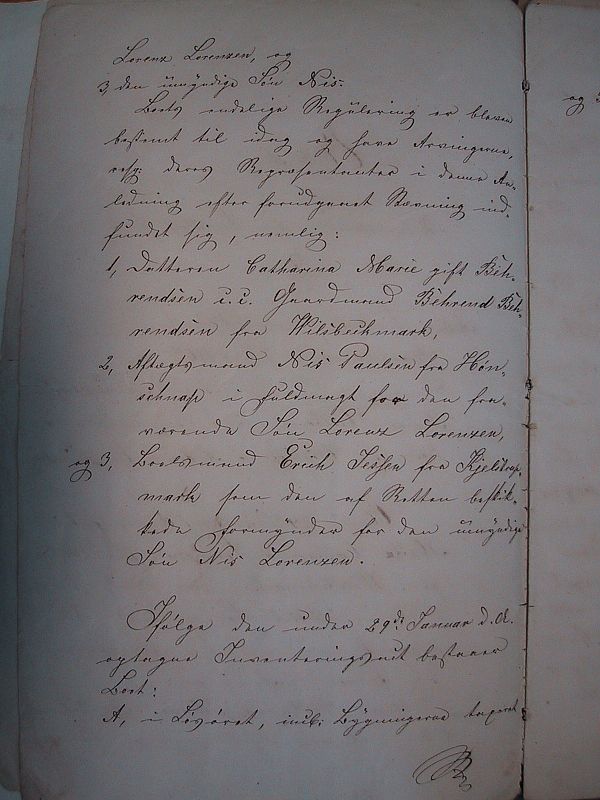 Lorenz Lorenzen, og
3, den umyndige Søn Nis.
Boets endelige Regulering er bleven
bestemt til idag og have Arvingerne,
resp: deres Repræsentanter i denne An-
ledning efter forudgaaet Stævning ind-
fundet sig, nemlig:
1, Datteren Catharina Marie gift Beh-
rendsen c. c. Gaardmand Behrend Beh-
rendsen fra Wilsbeckmark,
2, Aftægtsmand Nis Paulsen fra Høn-
schnap i Fuldmagt for den fra-
værende Søn Lorenz Lorenzen,
og 3, Boelsmand Erich Jessen fra Kjeldrap-
mark som den af Retten beskik-
kede Formynder for den umyndige
Søn Nis Lorenzen.
Ifølge den under 29de Januar d. A.
optagne Inventeringsact bestaaer
Boet:
A, i Løsøret, incl: Bygningerne taxeret
og 3